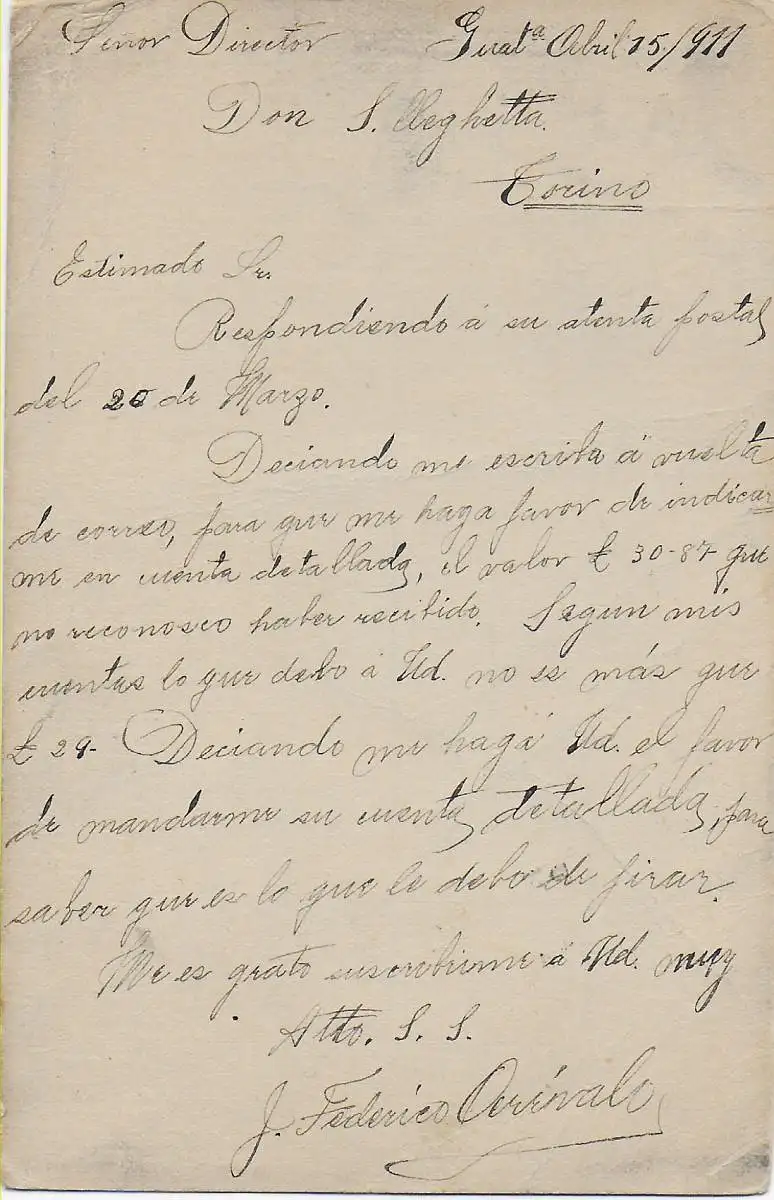 Señor Director Guatª Abril 15/911
Don S. Meghetta.
Torino
Estimado Sr.
Respondiendo á su atenta postal
del 20 de Marzo.
Deciando me escriba á vuelta
de correo, para que me haga favor de indicar
me en cuenta detallada, el valor £ 30-87 que
no reconosco haber recibido. Segun mis
cuentas lo que debo á Ud. no es más que
£ 29- Deciando me hagá Ud. el favor
de mandarme su cuenta detallada, para
saber que es lo que le debo de firar.
Me es grato suscribirme á Ud. muy
Atto. S. S.
J. Federico Arrévalo